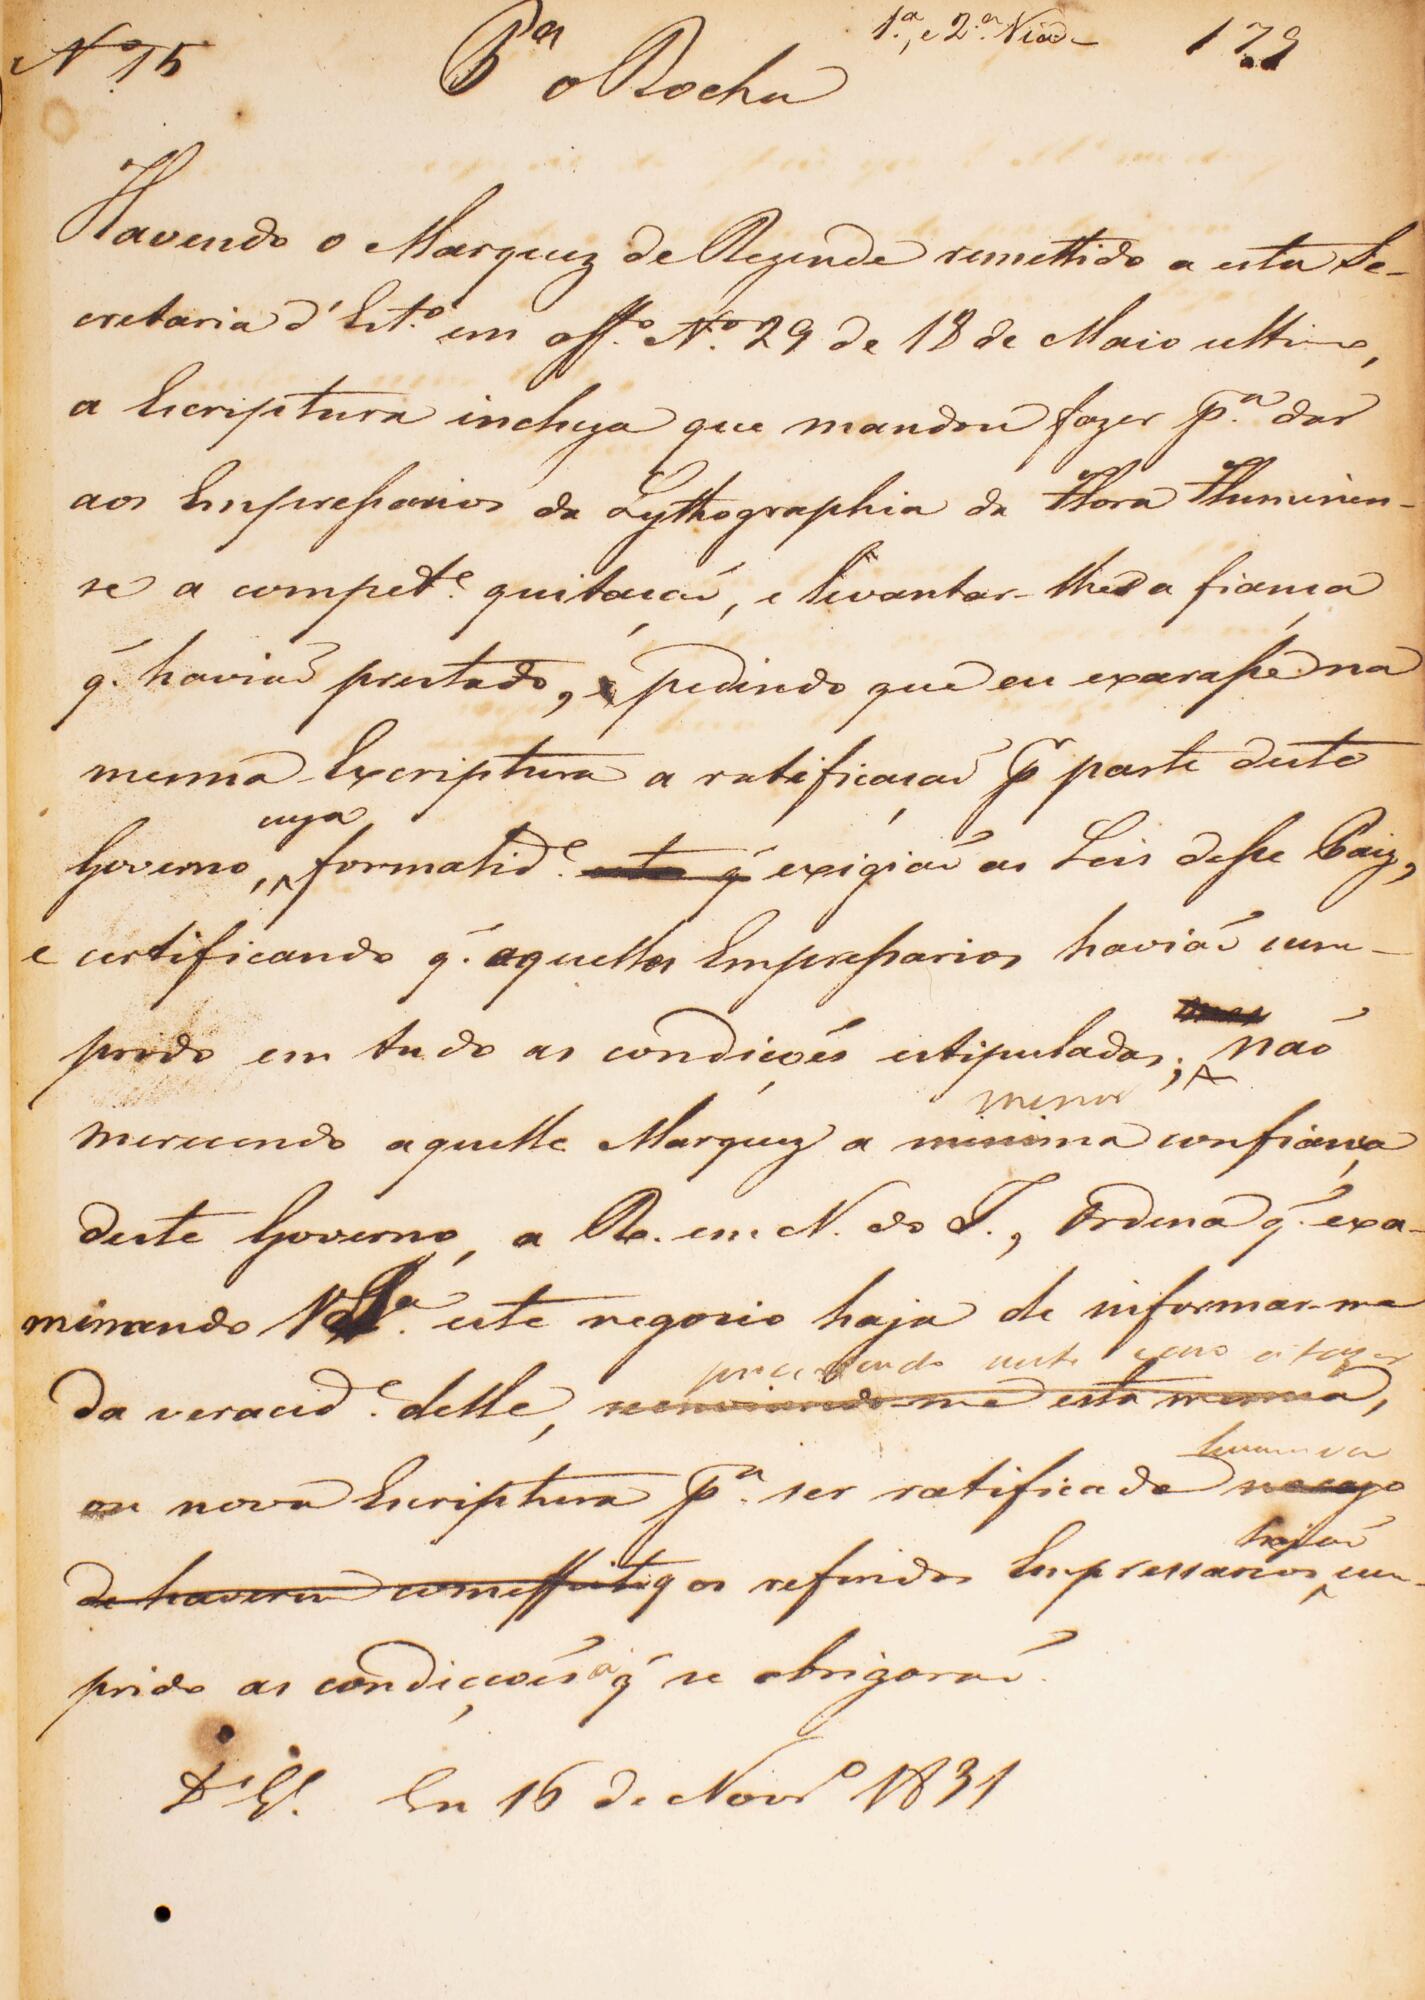 Nº 15
Pª o Rocha
1.ª, e 2.ª Via
179
Havendo o Marquez de Rezende remettido a esta Se-
cretaria d'Est.º em off.º N.º 29 de 18 de Maio ultimo,
a Escriptura incluza que mandou fazer p.ª dar
aos Empressarios da Lythographia da Flora Fluminen-
se a compet.e quitação, e levantar-lhes a fiança
q. havião prestado, e pedindo que eu exarasse na
mesma Escriptura a ratificação p.r parte deste
cuja
Governo, formalid.e esta q exigião as Leis desse Paiz,
e certificando q. aquelles Empressarios havião cum-
prido em tudo as condições estipuladas; não
menor
merecendo aquelle Marquez a minima confiança
deste Governo, a R. em N. do I., Ordena q. exa-
minando V. S.ª este negocio haja de informar-me
procurando neste caso a fazer
da veracid.e delle, reenviando-me esta mesma,
ou nova Escriptura p.ª ser ratificada no cazo
hajão
de haverem com effeito q os referidos Empressarios, cum-
prido as condicções a q se obrigarão.
D.s G.e Em 16 de Novr.º 1831